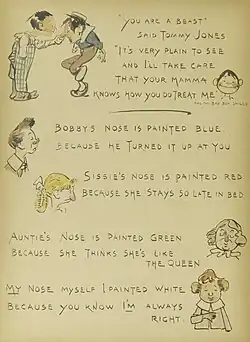 "YOU ARE A BEAST"
SAID TOMMY JONES
"IT'S VERY PLAIN TO SEE
AND I'LL TAKE CARE
THAT YOUR MAMMA
KNOWS HOW YOU DO TREAT ME"
BOBBY'S NOSE IS PAINTED BLUE
BECAUSE HE TURNED IT UP AT YOU
SISSIE'S NOSE IS PAINTED RED
BECAUSE SHE STAYS SO LATE IN BED
AUNTIE'S NOSE IS PAINTED GREEN
BECAUSE SHE THINKS SHE'S LIKE
THE QUEEN
MY NOSE MYSELF I PAINTED WHITE
BECAUSE YOU KNOW I'M ALWAYS
RIGHT.